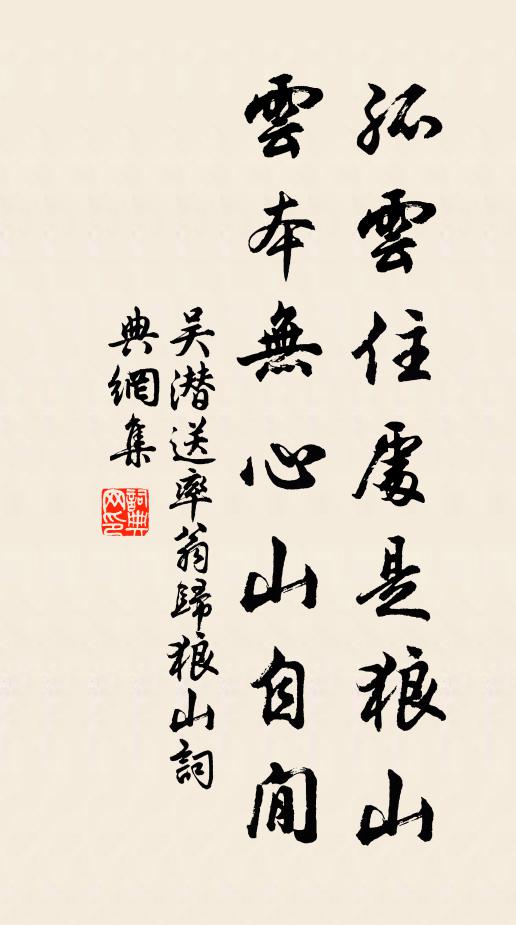 孤雲住處是狼山
雲本無心山自閒
吴潜送率翁歸狼山詞
典網集
詞典网印